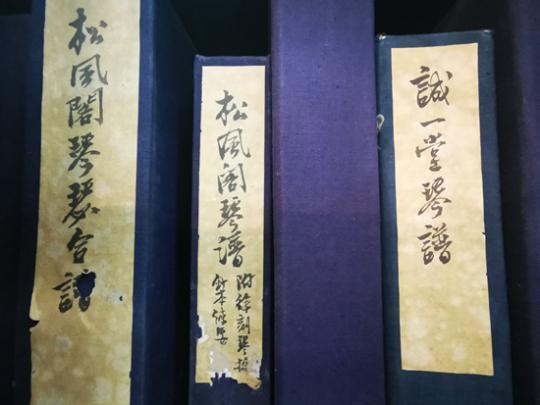 松風閣琴瑟合譜
松風閣琴譜
附徐
刻琴
誠一堂琴譜